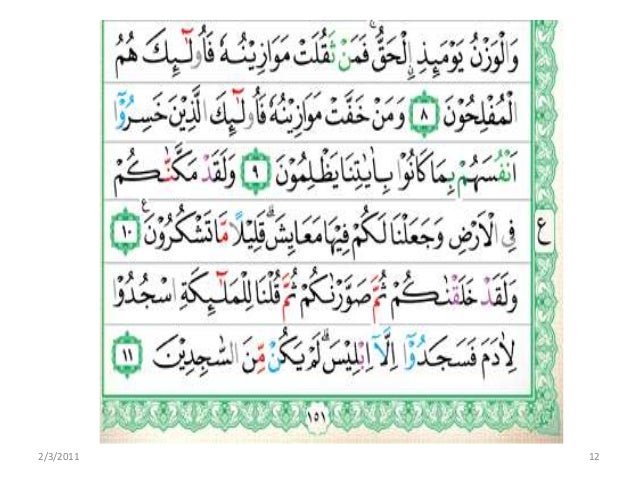 وَالْوَزْنُ يَوْمَئِذِ ۨالْحَقُّ ۚ فَمَنْ ثَقُلَتْ مَوَازِيْنُهٗ فَاُولٰٓئِكَ هُمُ
الْمُفْلِحُوْنَ ۸ وَمَنْ خَفَّتْ مَوَازِيْنُهٗ فَاُولٰٓئِكَ الَّذِيْنَ خَسِرُوْٓا
اَنْفُسَهُمْ بِمَا كَانُوْا بِاٰيٰتِنَا يَظْلِمُوْنَ ۹ وَلَقَدْ مَكَّنّٰكُمْ
فِى الْاَرْضِ وَجَعَلْنَا لَكُمْ فِيْهَا مَعَايِشَ ۗ قَلِيْلًا مَّا تَشْكُرُوْنَ ع ۱۰ ع
وَلَقَدْ خَلَقْنٰكُمْ ثُمَّ صَوَّرْنٰكُمْ ثُمَّ قُلْنَا لِلْمَلٰٓئِكَةِ اسْجُدُوْا
لِاٰدَمَ فَسَجَدُوْٓا اِلَّآ اِبْلِيْسَ ۗ لَمْ يَكُنْ مِّنَ السّٰجِدِيْنَ ۱۱
۱۵۱
2/3/2011 12